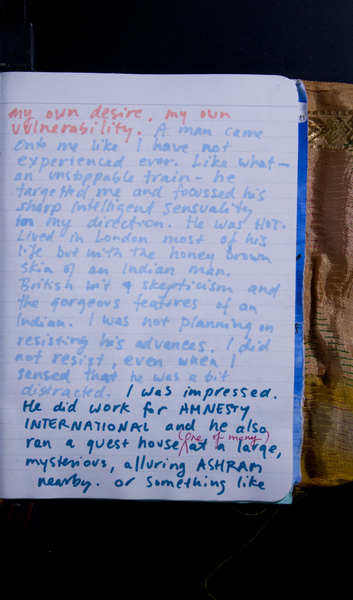 my own desire, my own
vulnerability. A man came
onto me like I have not
experienced ever. Like what—
an unstoppable train— he
targetted me and focussed his
sharp intelligent sensuality
in my direction. He was HOT.
Lived in London most of his
life but with the honey brown
skin of an Indian man.
British wit & skepticism and
the gorgeous features of an
Indian. I was not planning on
resisting his advances. I did
not resist, even when I
sensed that he was a bit
distracted. I was impressed.
He did work for AMNESTY
INTERNATIONAL and he also
(one of many)
ran a guest house at a large,
mysterious, alluring ASHRAM
nearby. or something like